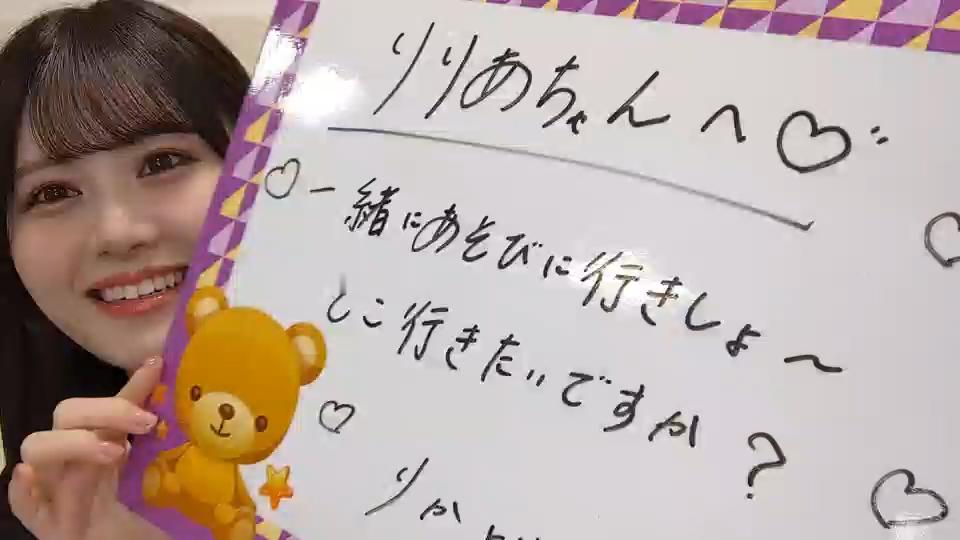 りりあちゃんへ♡
♡一緒にあそびに行きしょ〜
どこ行きたいですか?
りか